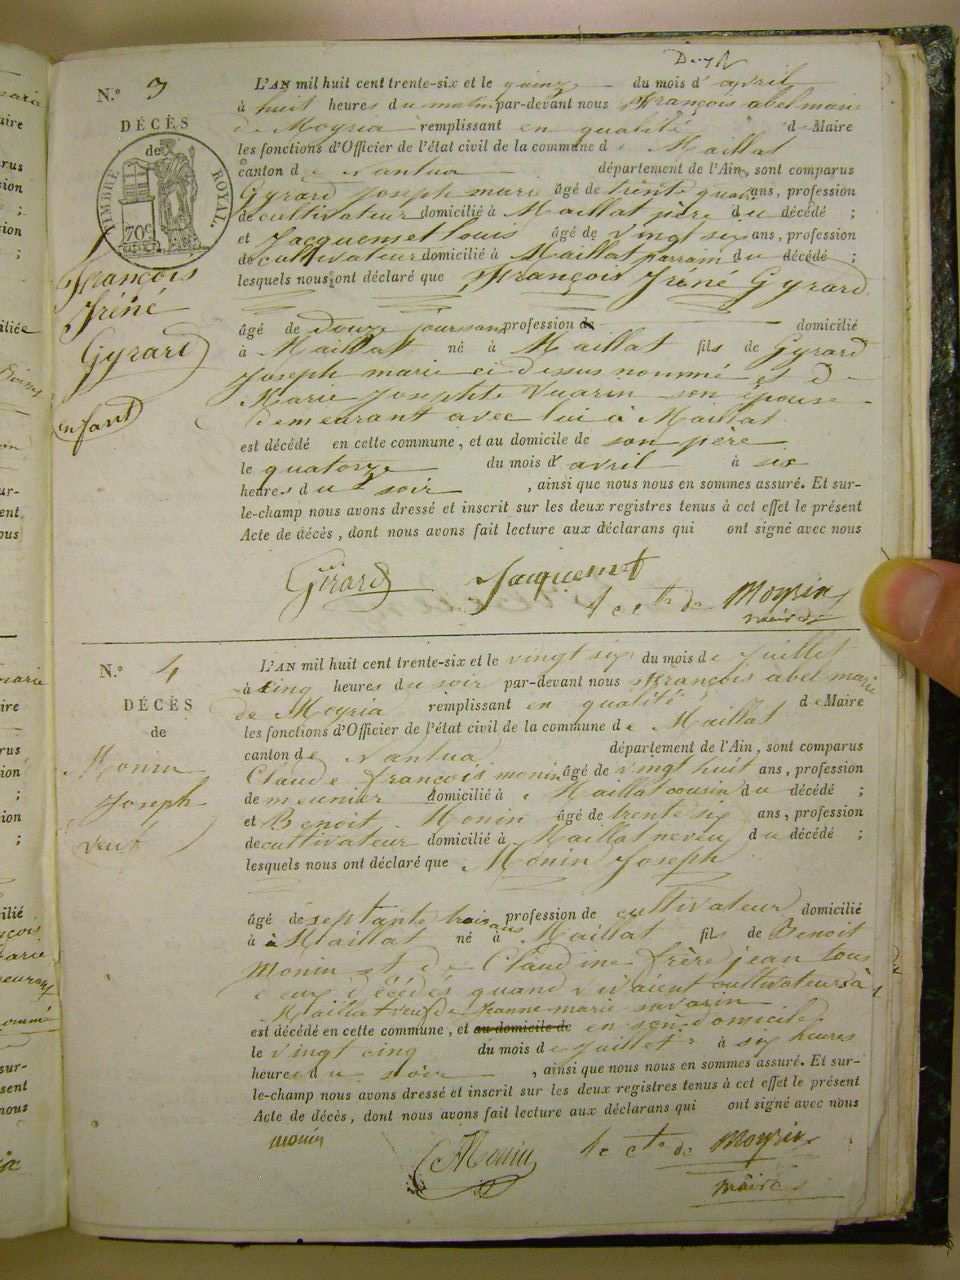 N.° 3
DÉCÈS
de
TIMBRE ROYAL
70c
François
Iréné
Gyrard
enfant
L'AN mil huit cent trente-six et le quinze du mois d'avril
à huit heures du matin par-devant nous François abel marie
de Moyria remplissant en qualité de Maire
les fonctions d'Officier de l'état civil de la commune de Maillat
canton de Nantua département de l'Ain, sont comparus
Gyrard Joseph marie âgé de trente quatre ans, profession
de cultivateur domicilié à Maillat père du décédé ;
et Jacquemet louis âgé de vingt six ans, profession
de cultivateur domicilié à Maillat parrain du décédé ;
lesquels nous ont déclaré que François Iréné Gyrard
âgé de douze jours ans profession de domicilié
à Maillat né à Maillat fils de Gyrard
Joseph marie ci dessus nommé et de
Marie Josephte Vuarin son épouse
demeurant avec lui à Maillat
est décédé en cette commune, et au domicile de son père
le quatorze du mois d'avril à six
heures du soir , ainsi que nous nous en sommes assuré. Et sur-
le-champ nous avons dressé et inscrit sur les deux registres tenus à cet effet le présent
Acte de décès, dont nous avons fait lecture aux déclarans qui ont signé avec nous
Girard Jacquemet
le cte de Moyria
maire
N.° 4
DÉCÈS
de
Monin
Joseph
veuf
L'AN mil huit cent trente-six et le vingt six du mois de Juillet
à cinq heures du soir par-devant nous François abel marie
de Moyria remplissant en qualité de Maire
les fonctions d'Officier de l'état civil de la commune de Maillat
canton de Nantua département de l'Ain, sont comparus
Claude françois monin âgé de vingt huit ans, profession
de meunier domicilié à Maillat cousin du décédé ;
et Benoit Monin âgé de trente six ans, profession
de cultivateur domicilié à Maillat neveu du décédé ;
lesquels nous ont déclaré que Monin Joseph
âgé de septante trois ans profession de cultivateur domicilié
à à Maillat né à Maillat fils de Benoit
Monin et de Claudine frère jean tous
deux décédés quand vivaient cultivateurs à
Maillat veuf de jeanne marie savarin
est décédé en cette commune, et au domicile de en son domicile
le vingt cinq du mois de Juillet à six heures
heures du soir , ainsi que nous nous en sommes assuré. Et sur-
le-champ nous avons dressé et inscrit sur les deux registres tenus à cet effet le présent
Acte de décès, dont nous avons fait lecture aux déclarans qui ont signé avec nous
monin C Monin le cte de Moyria
maire